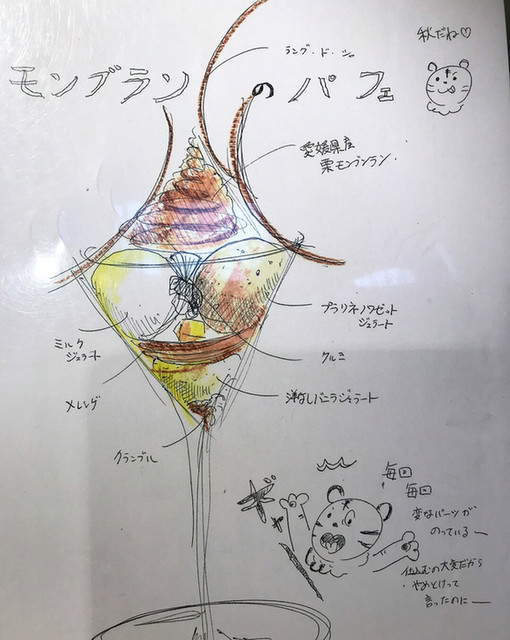 秋だね♡
ラング・ド・シャ
モンブランのパフェ
愛媛県産
栗モンブラン.
プラリネノワゼット
ジェラート
ミルク
ジェラート
クルミ
メレンゲ
洋なしバニラジェラート
クランブル
毎回
毎回
変なパーツが
のっているー
仕込むの大変だから
やめとけって
言ったのにー